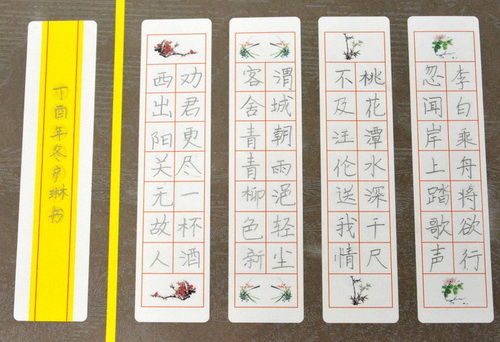 李白乘舟将欲行
忽闻岸上踏歌声
桃花潭水深千尺
不及汪伦送我情
渭城朝雨浥轻尘
客舍青青柳色新
劝君更尽一杯酒
西出阳关无故人
丁酉年冬琳书